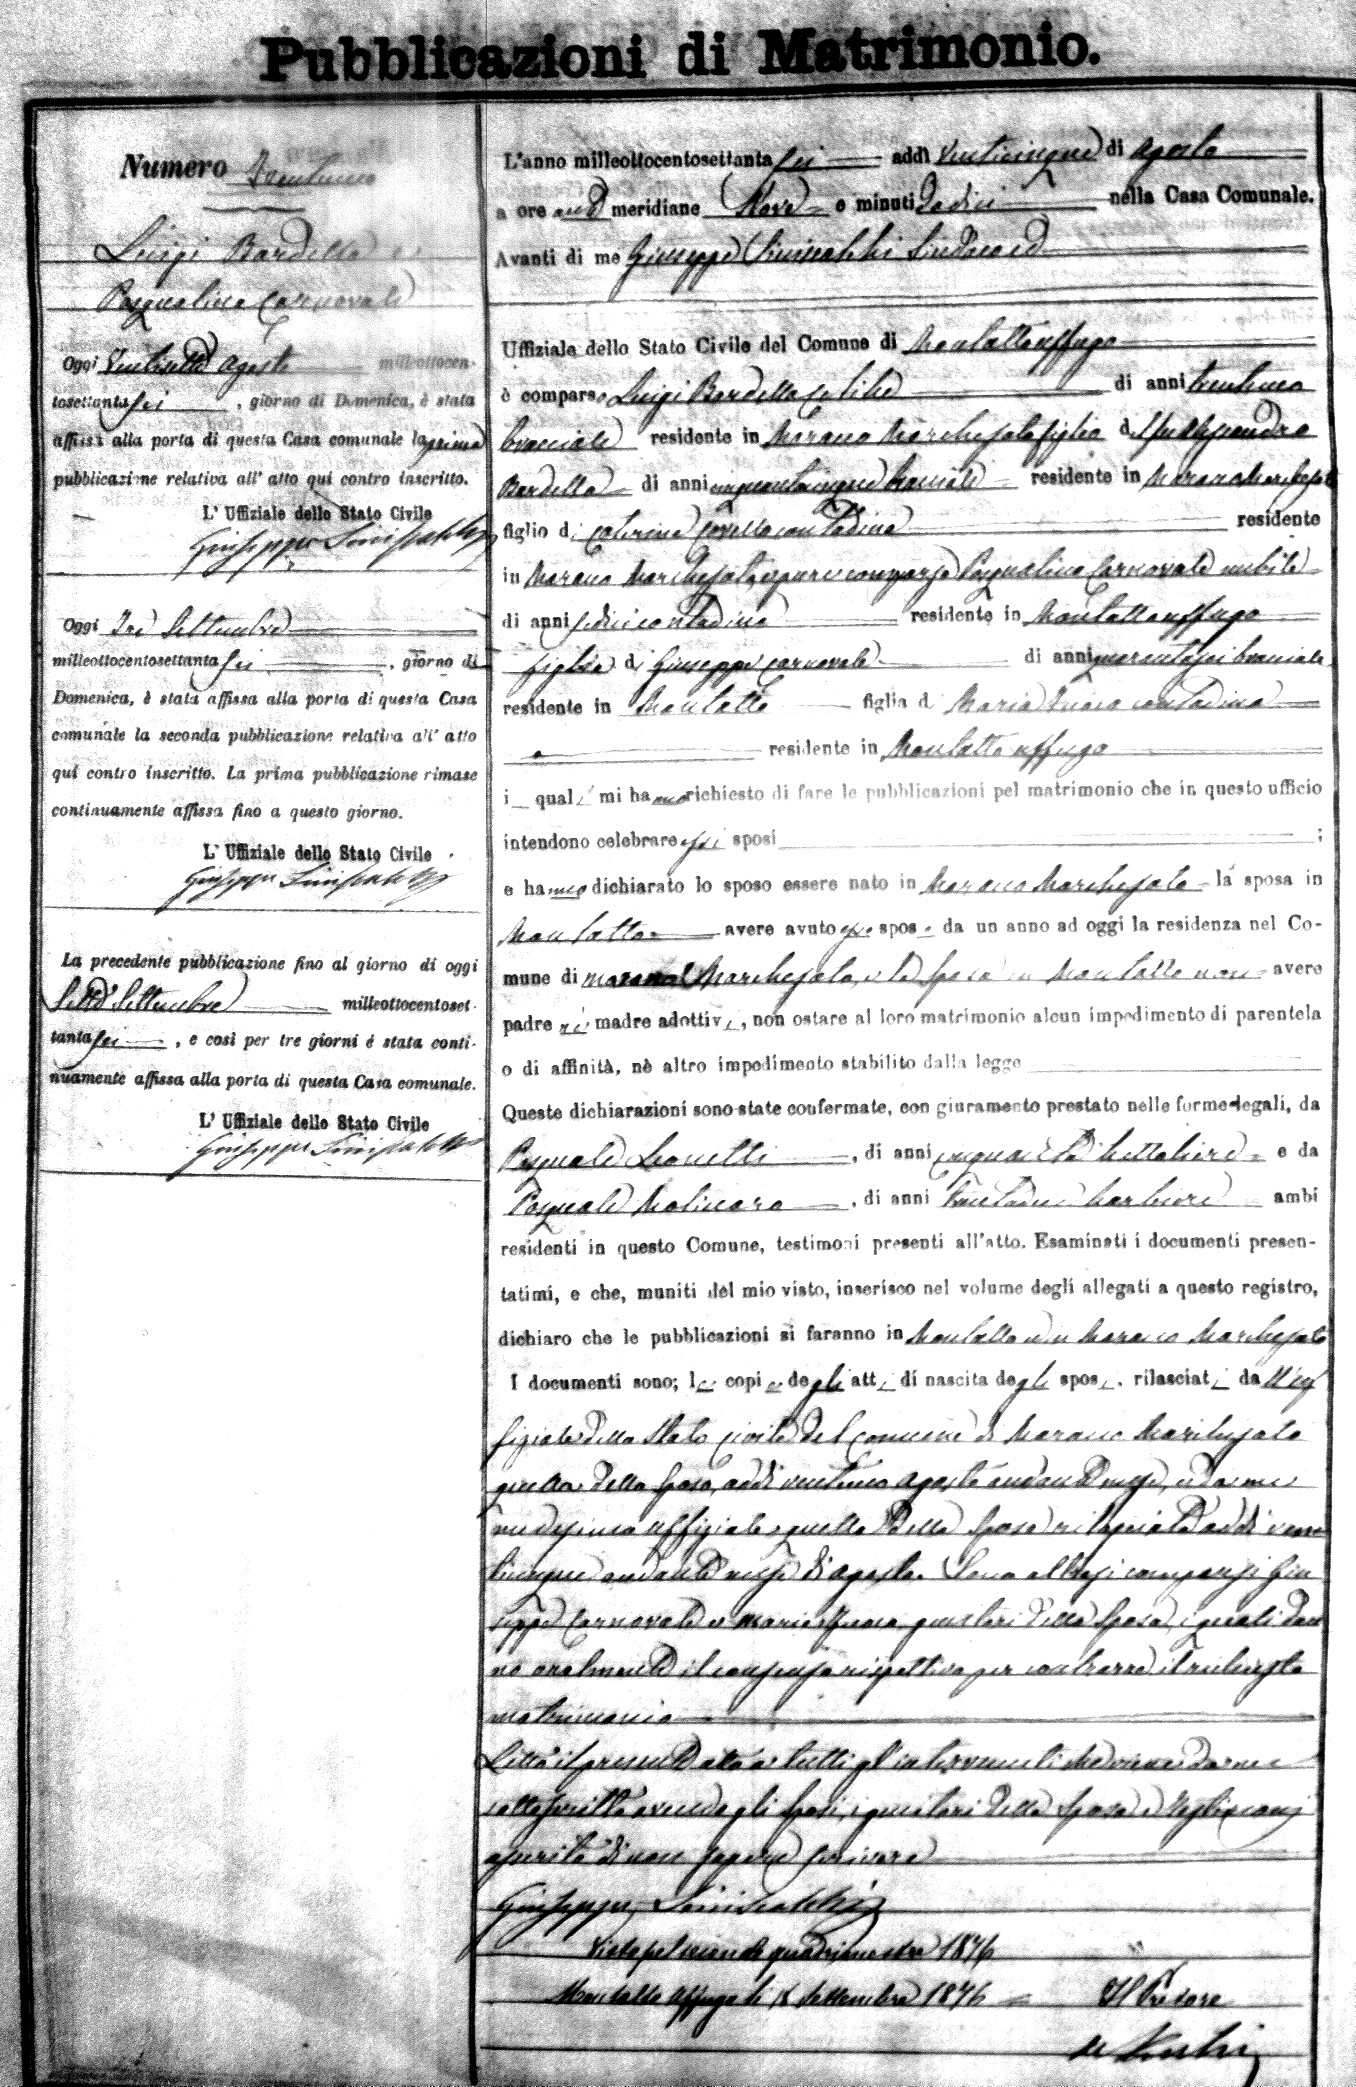 Pubblicazioni di Matrimonio.
Numero Trentuno
Luigi Bardella e
Pasqualina Carnovale
Oggi Ventisette Agosto milleottocen-
tosettanta sei, giorno di Domenica, è stata
affissa alla porta di questa Casa comunale la prima
pubblicazione relativa all' atto qui contro inscritto.
L' Uffiziale dello Stato Civile
Giuseppe Siniscalchi
Oggi Tre Settembre
milleottocentosettanta sei, giorno di
Domenica, è stata affissa alla porta di questa Casa
comunale la seconda pubblicazione relativa all' atto
qui contro inscritto. La prima pubblicazione rimase
continuamente affissa fino a questo giorno.
L' Uffiziale dello Stato Civile
Giuseppe Siniscalchi
La precedente pubblicazione fino al giorno di oggi
Sette Settembre milleottocentoset-
tanta sei, e così per tre giorni é stata conti-
nuamente affissa alla porta di questa Casa comunale.
L' Uffiziale dello Stato Civile
Giuseppe Siniscalchi
L'anno milleottocentosettanta sei addì Venticinque di Agosto
a ore anti meridiane Nove e minuti dodici nella Casa Comunale.
Avanti di me Giuseppe Siniscalchi Sindaco
Uffiziale dello Stato Civile del Comune di Montaltouffugo
è comparso Luigi Bardella celibe di anni trentuno
bracciale residente in Marano Marchesato figlio d
Bardella di anni cinquantacinque bracciale residente in Marano Marchesato
figlio di Caterina Covello contadina residente
in Marano Marchesato, e pure comparsa Pasqualina Carnovale nubile
di anni sedici contadina residente in Montaltouffugo
figlia di Giuseppe Carnovale di anni quarantasei bracciale
residente in Montalto figlia d Maria contadina
residente in Montalto uffugo
i quali mi hanno richiesto di fare le pubblicazioni pel matrimonio che in questo ufficio
intendono celebrare essi sposi ;
e hanno dichiarato lo sposo essere nato in Marano Marchesato la sposa in
Montalto avere avuto spos da un anno ad oggi la residenza nel Co-
mune di Marano Marchesato, e la sposa in Montalto non avere
padre nè madre adottivi, non ostare al loro matrimonio alcun impedimento di parentela
o di affinità, nè altro impedimento stabilito dalla legge
Queste dichiarazioni sono state confermate, con giuramento prestato nelle forme legali, da
Pasquale Leonetti, di anni cinquanta bettoliere e da
Pasquale Molinaro, di anni barbiere ambi
residenti in questo Comune, testimoni presenti all'atto. Esaminati i documenti presen-
tatimi, e che, muniti del mio visto, inserisco nel volume degli allegati a questo registro,
dichiaro che le pubblicazioni si faranno in Montalto e in Marano Marchesato
I documenti sono; le copie degli atti di nascita degli sposi, rilasciati da
fiziale dello Stato civile del comune di Marano Marchesato
quella dello sposo, addì ventuno Agosto andante mese, e da me
medesimo uffiziale, quella della sposa rilasciata addì ven
ticinque andante mese di Agosto. Sono altresì comparsi Giu
seppe Carnovale e Maria genitori della sposa, i quali dan
no oralmente il consenso rispettivo per contrarre il richiesto
matrimonio
Letto il presente atto a tutti gl'intervenuti che viene da me
sottoscritto avendo gli sposi, i genitori della sposa e testimoni
asserito di non sapere scrivere
Giuseppe Siniscalchi
Visto pel secondo quadrimestre 1876
Montalto Uffugo li Settembre 1876 Il Pretore